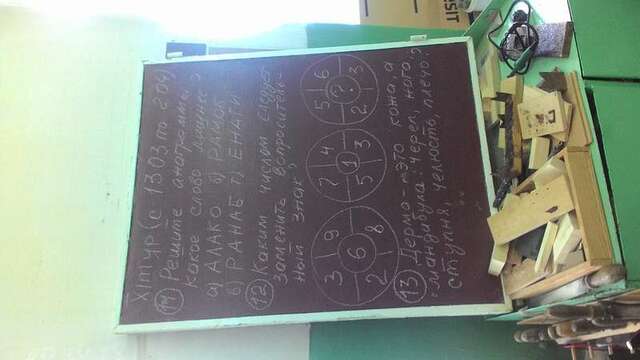 XI тур (с 13.03 по 2.04)
11 Решите анаграммы
Какое слово лишнее?
а) АЛАКО б) РАМОК
в) РАНАБ г) ЕНАТИ
12 Каким числом следует
заменить вопроситель-
ный знак?
3 9 6 2 8
7 4 1 5 3
5 6 ? 2 3
13 Дерма - это кожа, а
мандибула: череп, нога,
ступня, челюсть, плечо?